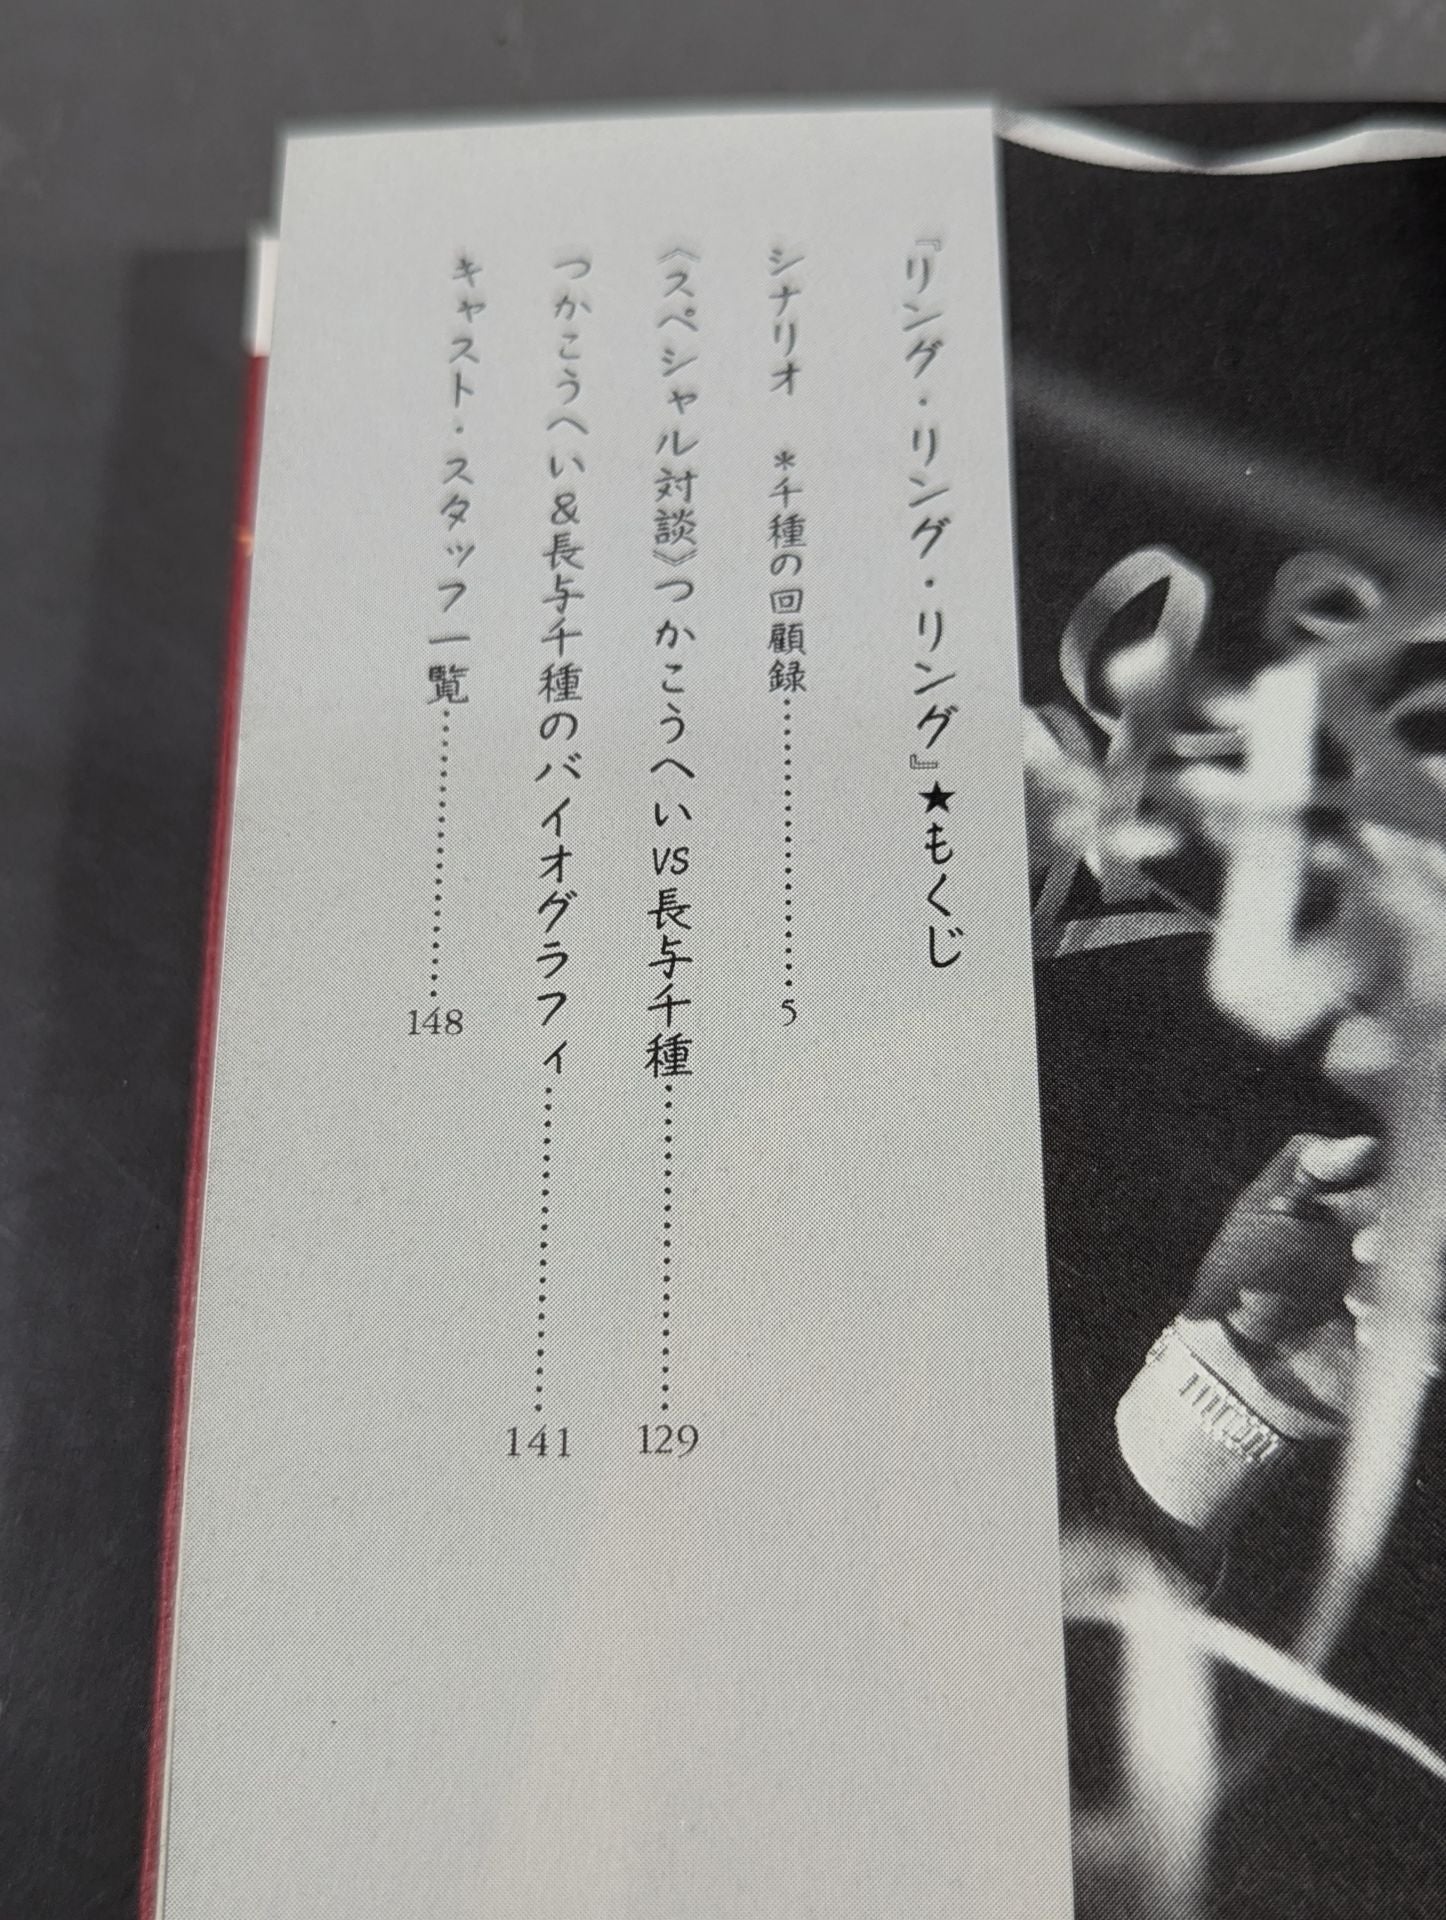 『リング・リング・リング』★もくじ
シナリオ　＊千種の回顧録……………………5
《スペシャル対談》つかこうへいVS長与千種……………………129
つかこうへい＆長与千種のバイオグラフィ……………………141
キャスト・スタッフ一覧……………………148